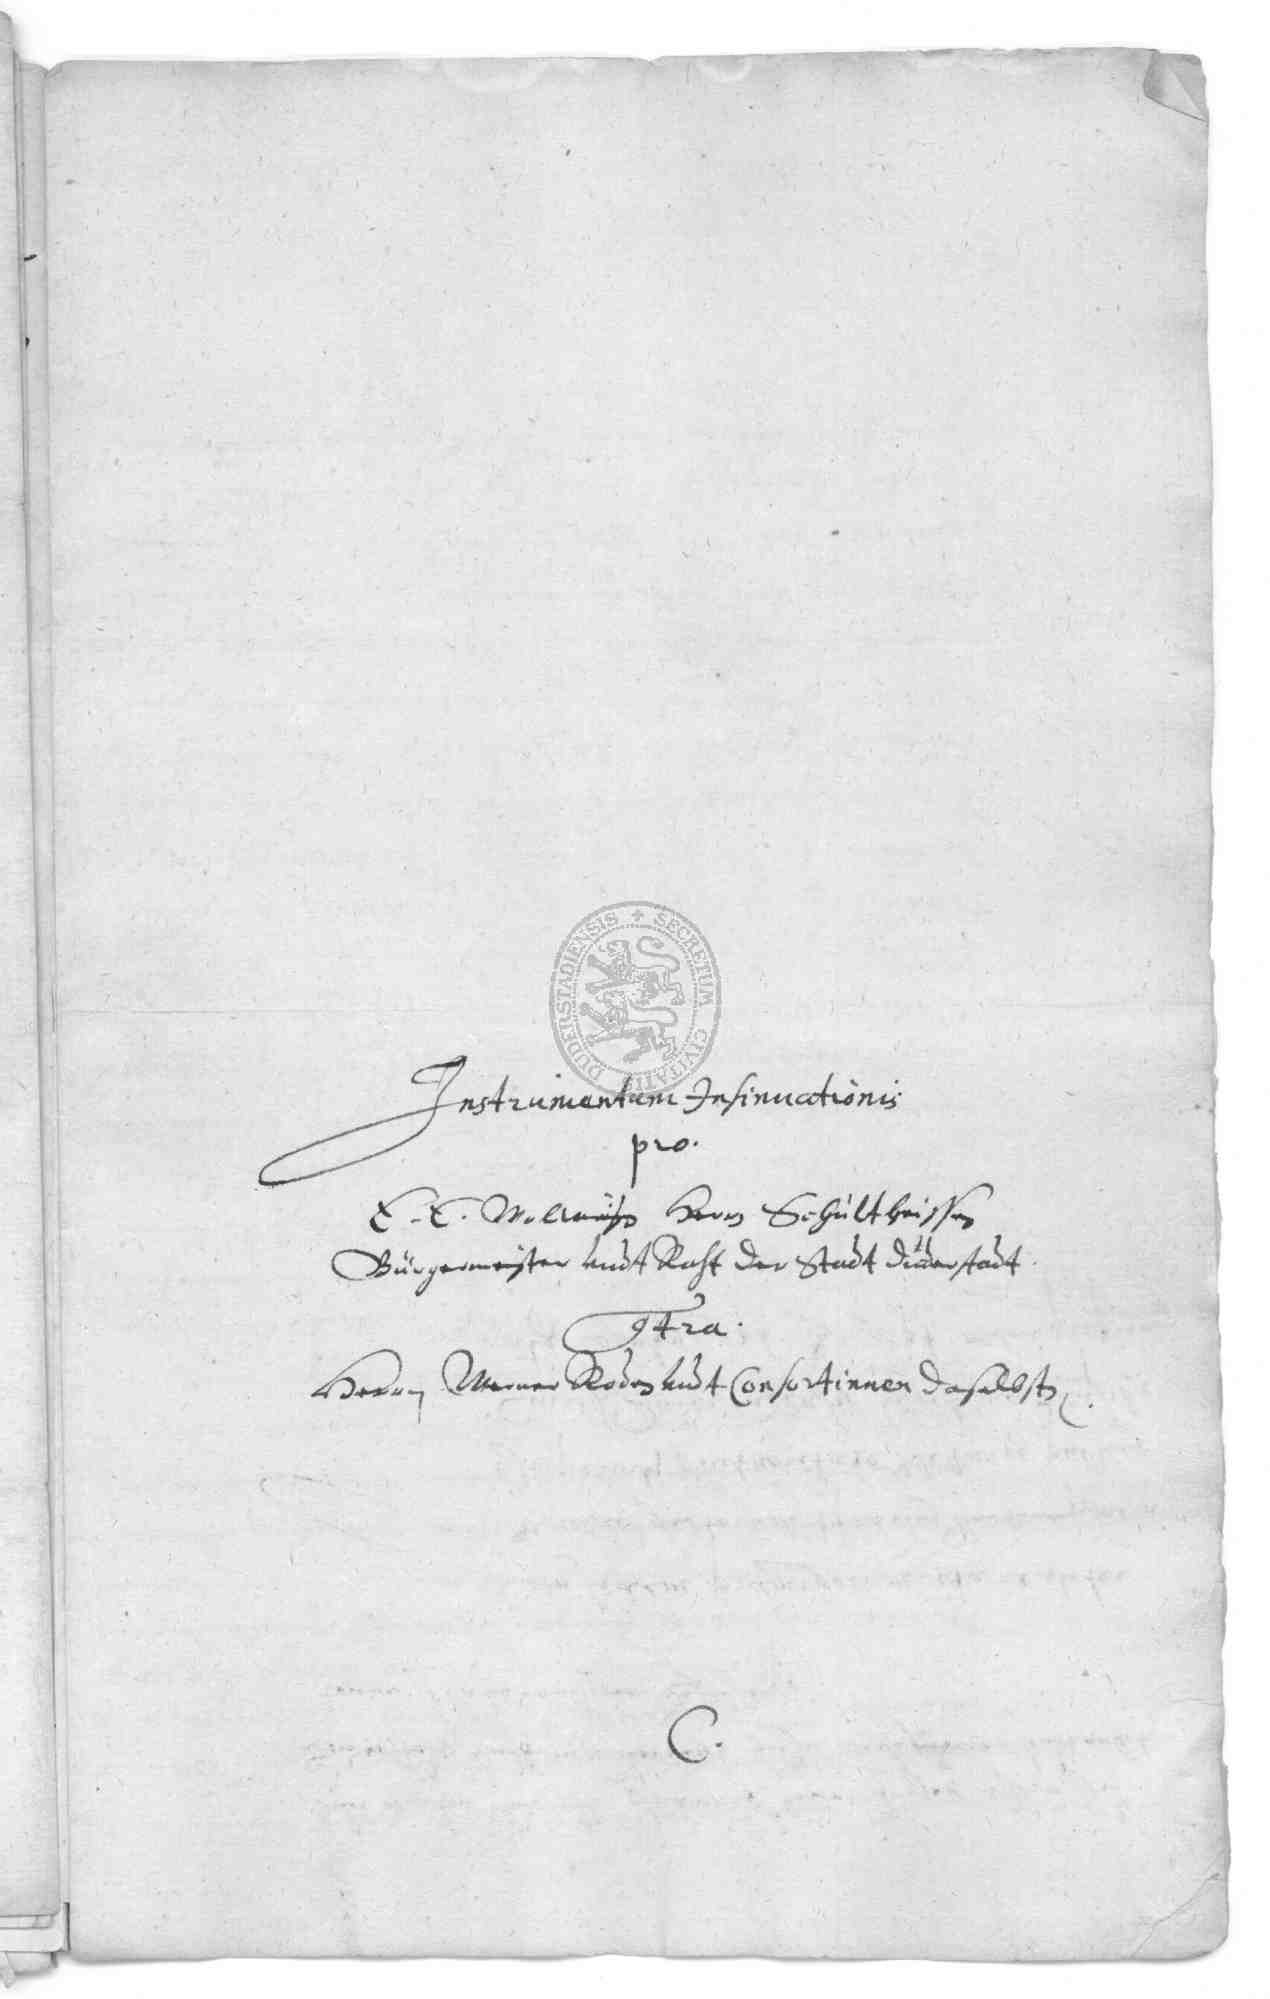 SECRETUM CIVITATIS DUDERSTADIENSIS
Instrumentum Insinuationis
pro.
E. E. Wollweiß Herrn Schultheissen
Bürgermeister undt Raht der Stadt Duderstadt
9tra.
Herrn Werner Roden undt Consortinnen daselbsten.
C.